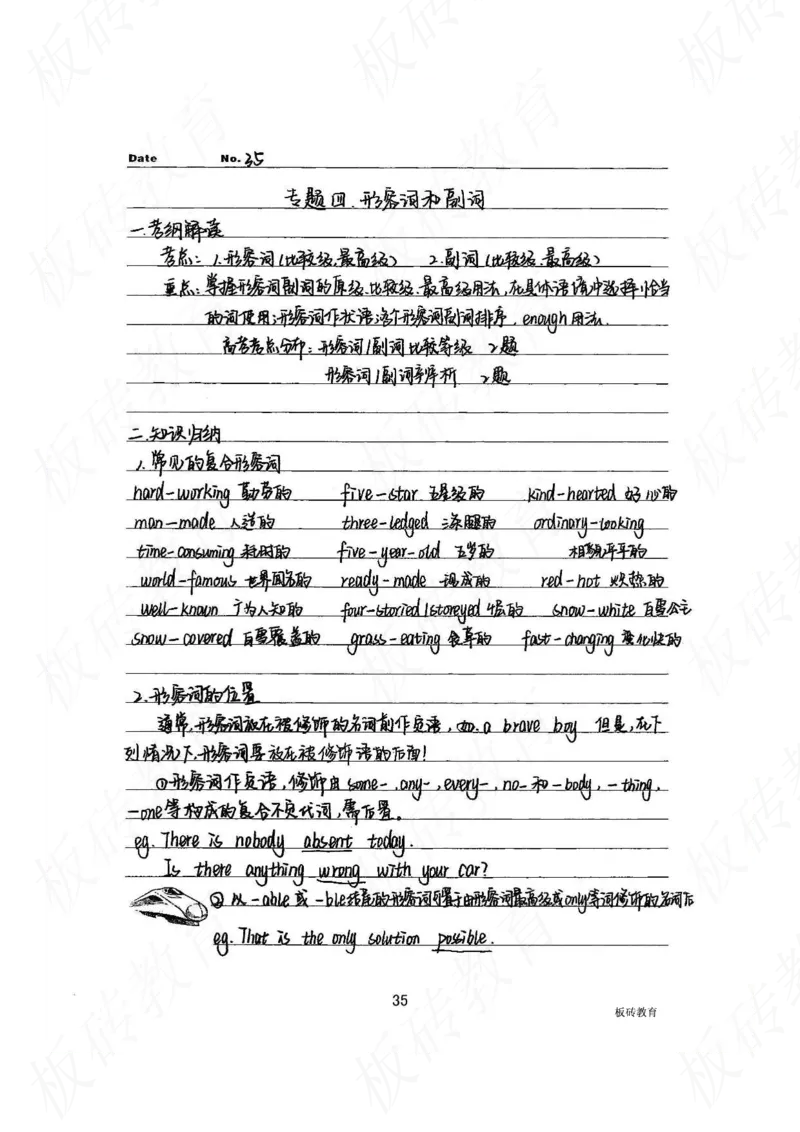 Date No. 35
专题四.形容词和副词
一.考纲解读
考点: 1.形容词(比较级.最高级) 2.副词(比较级.最高级)
重点:掌握形容词副词的原级.比较级.最高级用法,在具体语境中选择恰当
的词使用;形容词作状语;多个形容词副词排序,enough用法.
高考考点分布:形容词/副词比较等级 2题
形容词/副词辨析 2题
二.知识归纳
1.常见的复合形容词
hard-working 勤劳的 five-star 五星级的 kind-hearted 好心的
man-made 人造的 three-ledged 三条腿的 ordinary-looking
time-consuming 耗时的 five-year-old 五岁的 相貌平平的
world-famous 世界闻名的 ready-made 现成的 red-hot 火热的
well-known 广为人知的 four-storied/storeyed 4层的 snow-white 白雪公主
snow-covered 白雪覆盖的 grass-eating 食草的 fast-changing 变化快的
2.形容词的位置
通常,形容词放在被修饰的名词前作定语,如.a brave boy 但是,在下
列情况下,形容词要放在被修饰语的后面!
①形容词作定语,修饰由some-,any-,every-,no-和-body,-thing,
-one等构成的复合不定代词,需后置。
eg. There is nobody absent today.
Is there anything wrong with your car?
②以-able或-ble结尾的形容词可置于由形容词最高级或only等词修饰的名词后
eg. That is the only solution possible.
35
板砖教育